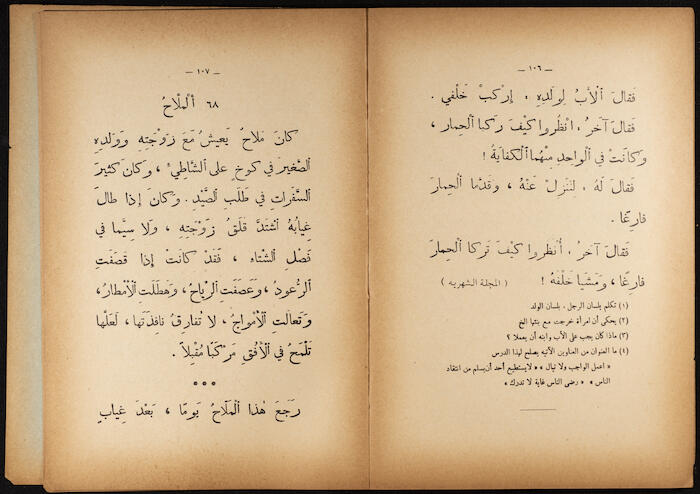 — ١٠٦ —
فَقالَ ٱلْأَبُ لِوَلَدِهِ ، إِرْكَبْ خَلْفي .
فَقالَ آخَرُ ، انْظُروا كَيْفَ رَكِبا ٱلْحِمارَ ،
وَكَانَتْ في ٱلْواحِدِ مِنْهُما ٱلْكَفايَةُ !
فَقالَ لَهُ ، لِنَنْزِلْ عَنْهُ ، وَقَدَّما ٱلْحِمارَ
فارِغًا .
فَقالَ آخَرُ ، أُنْظُروا كَيْفَ تَرَكا ٱلْحِمارَ
فارِغًا ، وَمَشَيا خَلْفَهُ ! ( المجلة الشهرية )
(١) تكلم بلسان الرجل . بلسان الولد
(٢) يحكى أن امرأة خرجت مع بنتها الخ
(٣) ماذا كان يجب على الأب وابنه أن يعملا ؟
(٤) ما العنوان من العناوين الآتية يصلح لهذا الدرس
« اعمل الواجب ولا تبال » « لا يستطيع أحد أن يسلم من انتقاد
الناس » « رضى الناس غاية لا تدرك »
— ١٠٧ —
٦٨ ٱلْمَلّاحُ
كانَ مَلّاحٌ يَعيشُ مَعَ زَوْجَتِهِ وَوَلَدِهِ
ٱلصَّغيرِ في كوخٍ على ٱلشّاطِئِ ، وَكانَ كَثيرَ
ٱلسَّفَراتِ في طَلَبِ ٱلصَّيْدِ . وَكانَ إذا طالَ
غِيابُهُ ٱشْتَدَّ قَلَقُ زَوْجَتِهِ ، وَلا سِيَّما في
فَصْلِ ٱلشِّتاءِ ، فَقَدْ كانَتْ إذا قَصَفَتِ
ٱلرُّعودُ ، وَعَصَفَتِ ٱلرِّياحُ ، وَهَطَلَتِ ٱلْأَمْطارُ ،
وَتَعالَتِ ٱلْأَمْواجُ ، لا تُفارِقُ نافِذَتَها ، لَعَلَّها
تَلْمَحُ في ٱلْأُفُقِ مَرْكَبًا مُقْبِلاً .
رَجَعَ هٰذا ٱلْمَلّاحُ يَومًا ، بَعْدَ غِيابٍ